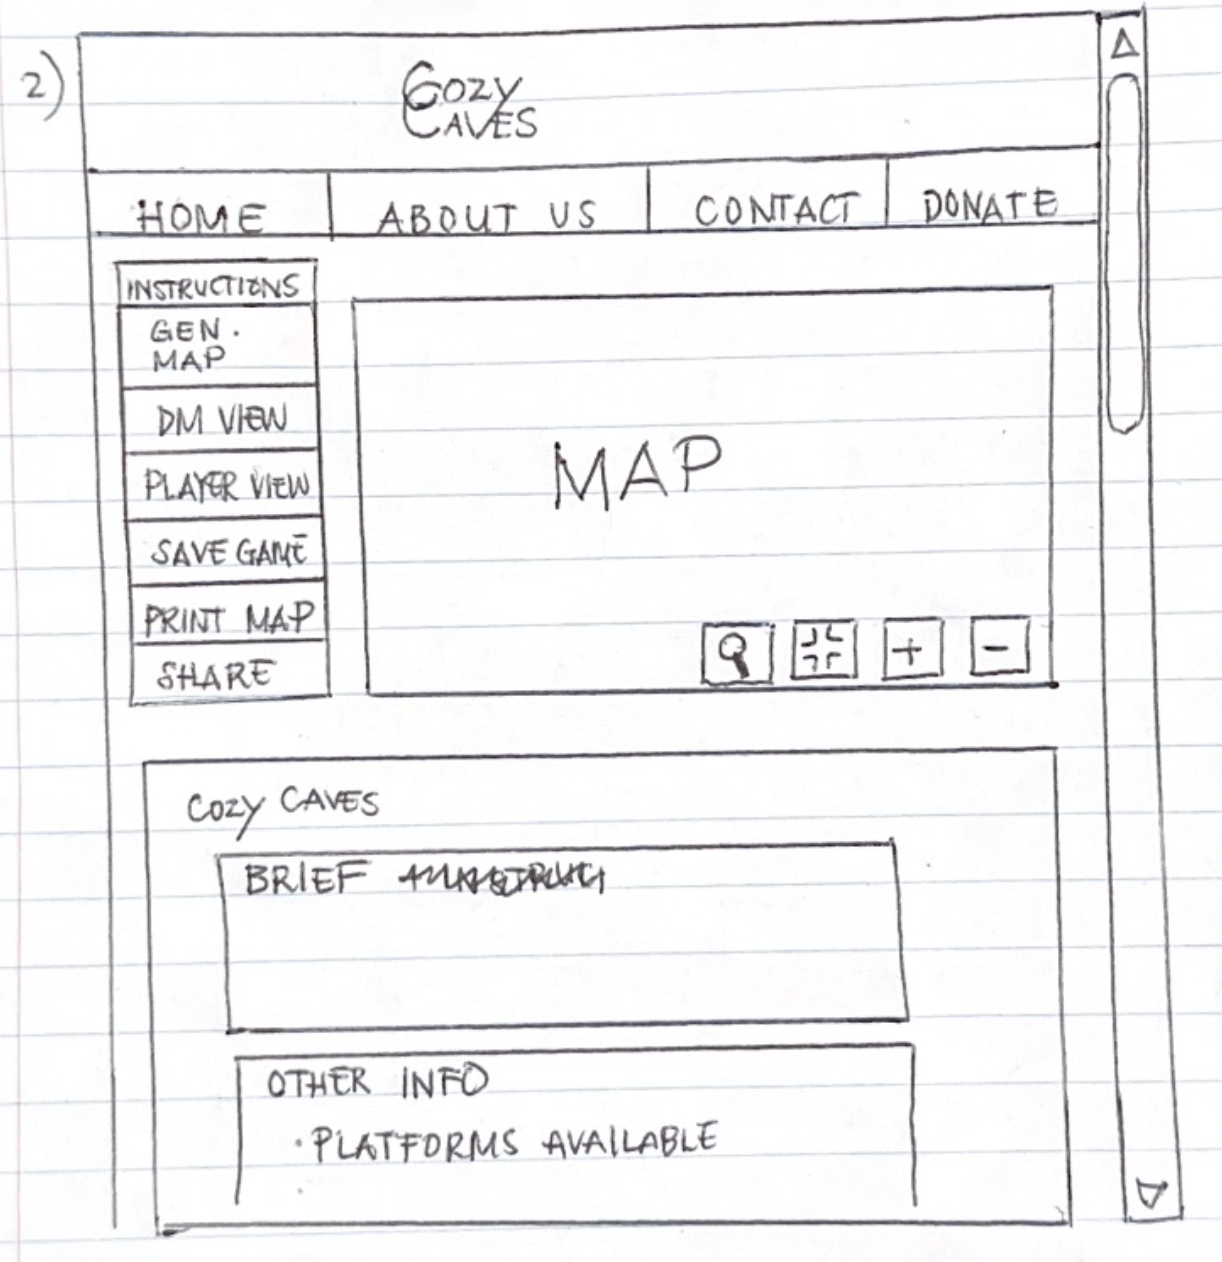 2)
COZY
CAVES
HOME
ABOUT US
CONTACT
DONATE
INSTRUCTIONS
GEN.
MAP
DM VIEW
PLAYER VIEW
SAVE GAME
PRINT MAP
SHARE
MAP
+
-
COZY CAVES
BRIEF
OTHER INFO
· PLATFORMS AVAILABLE
·